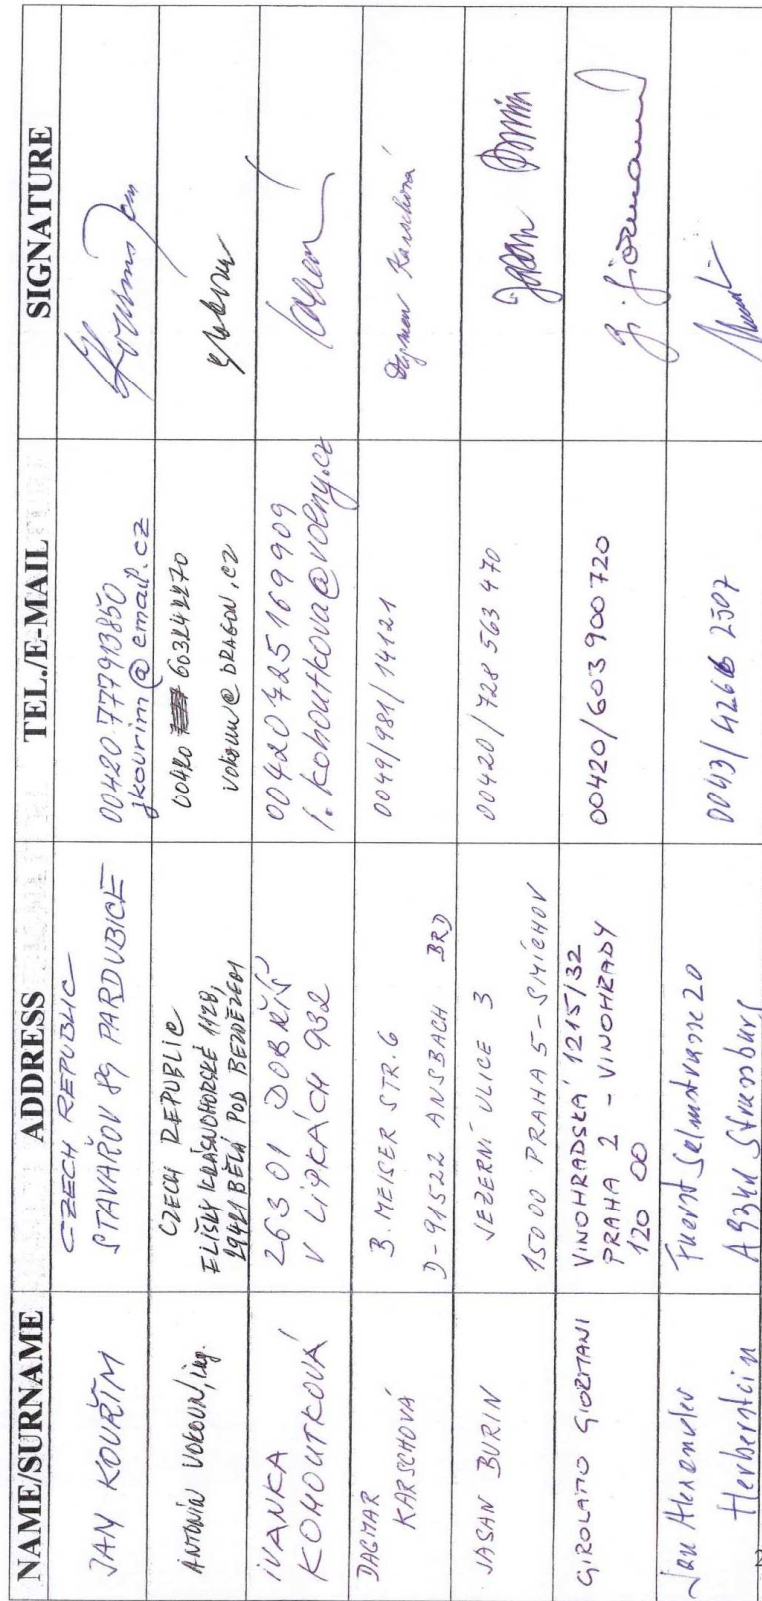 NAME/SURNAME ADDRESS TEL./E-MAIL SIGNATURE
JAN KOUŘIM
CZECH REPUBLIC
STAVAŘOV 89 PARDUBICE
00420 777913850
jkourim@email.cz
ANTONÍN VOKOUN, ing.
CZECH REPUBLIC
ELIŠKY KRÁSNOHORSKÉ 1128,
29421 BĚLÁ POD BEZDĚZEM
00420 603242270
vokoun@DRAGON.CZ
IVANKA
KOHOUTKOVÁ
26301 DOBŘÍŠ
V LIPKÁCH 932
00420 725169909
i.kohoutkova@volny.cz
DAGMAR
KARSCHOVÁ
B. MEISER STR. 6
D-91522 ANSBACH BRD
0049/981/14121
Dagmar Karschová
JASAN BURIN
JEZERNÍ ULICE 3
15000 PRAHA 5 - SMÍCHOV
00420/728 563 470
Jasan Burin
GIROLAMO GIORMANI
VINOHRADSKÁ 1215/32
PRAHA 2 - VINOHRADY
120 00
00420/603 900 720
G. Giormani
Jan Alexander
Herberstein
Fuerst Salmstrasse 20
A9341 Strassburg
0043/4266 2507
2